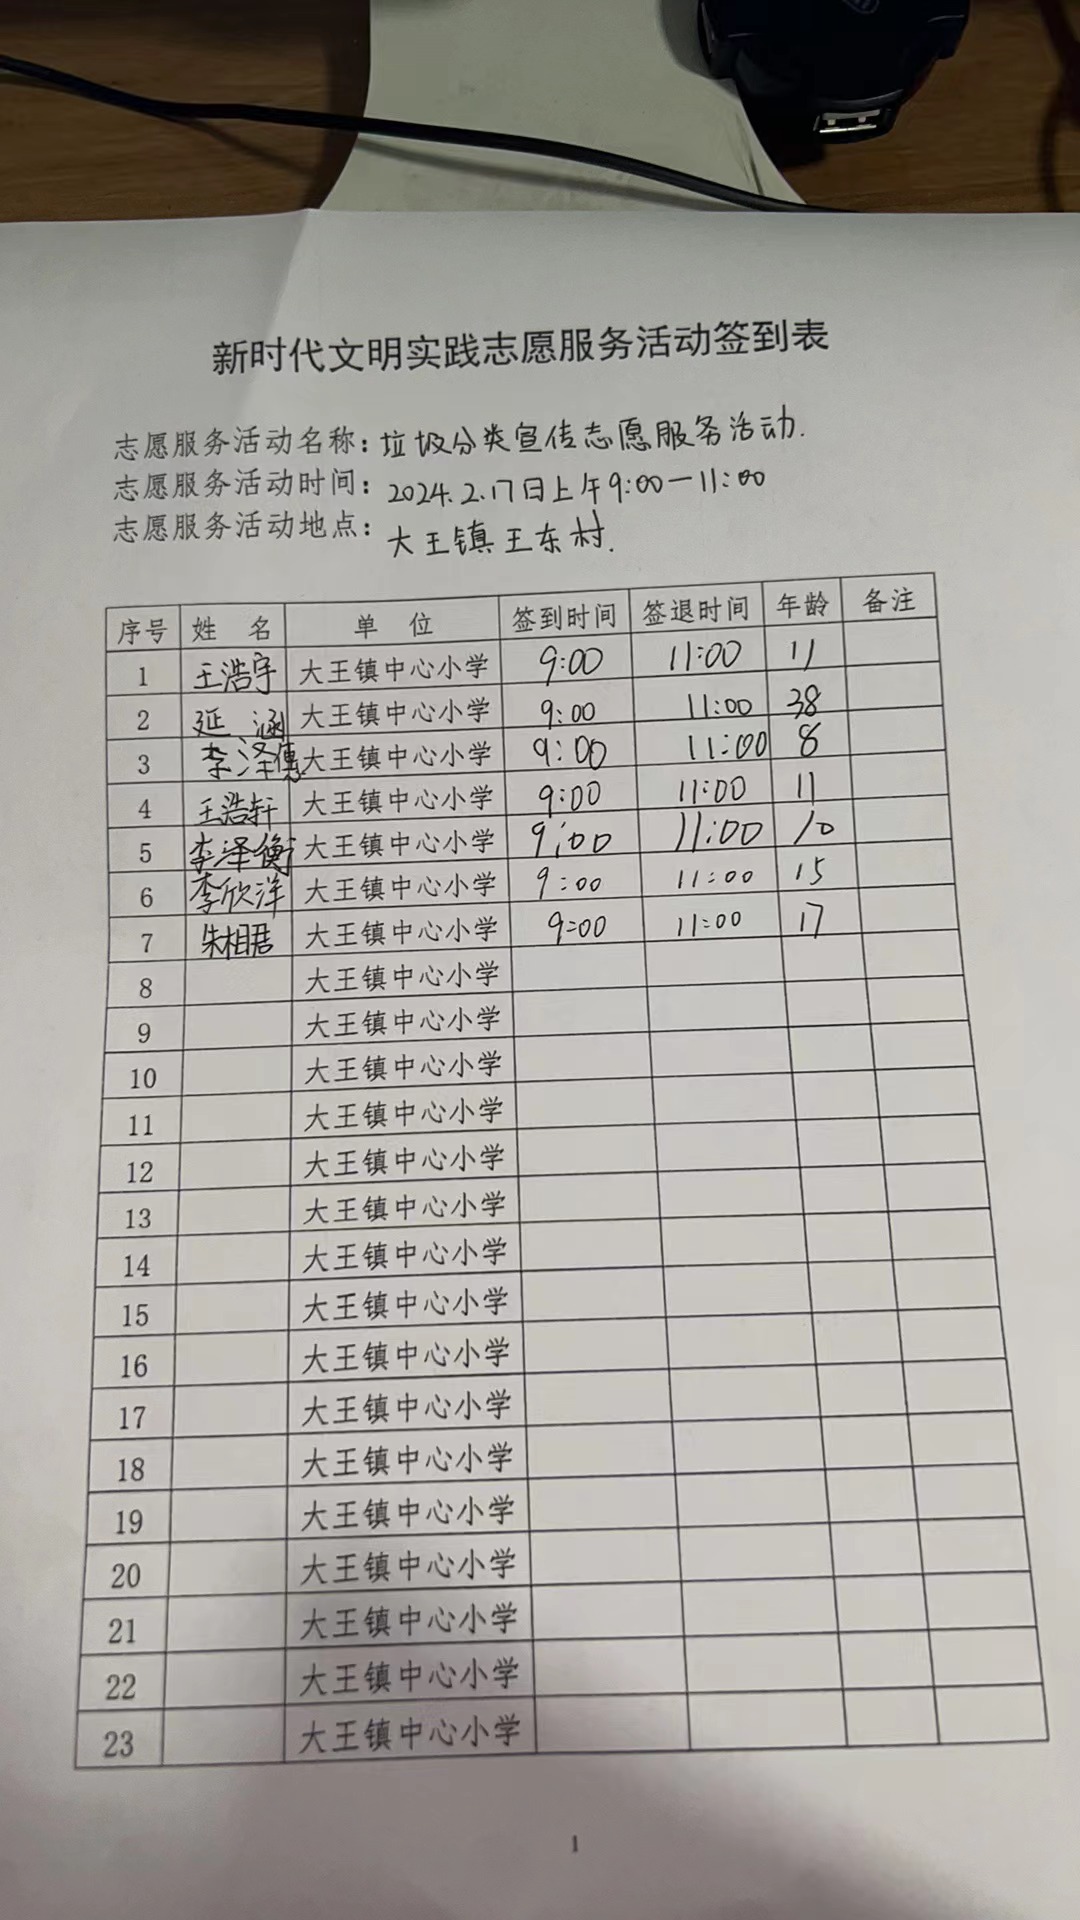 新时代文明实践志愿服务活动签到表
志愿服务活动名称：垃圾分类宣传志愿服务活动.
志愿服务活动时间：2024.2.17日上午9:00—11:00
志愿服务活动地点：大王镇王东村.
序号 姓 名 单 位 签到时间 签退时间 年龄 备注
1 王浩宇 大王镇中心小学 9:00 11:00 11
2 延 涵 大王镇中心小学 9:00 11:00 38
3 李泽 大王镇中心小学 9:00 11:00 8
4 王浩轩 大王镇中心小学 9:00 11:00 11
5 李泽衡 大王镇中心小学 9:00 11:00 10
6 李欣洋 大王镇中心小学 9:00 11:00 15
7 朱相君 大王镇中心小学 9:00 11:00 17
8 大王镇中心小学
9 大王镇中心小学
10 大王镇中心小学
11 大王镇中心小学
12 大王镇中心小学
13 大王镇中心小学
14 大王镇中心小学
15 大王镇中心小学
16 大王镇中心小学
17 大王镇中心小学
18 大王镇中心小学
19 大王镇中心小学
20 大王镇中心小学
21 大王镇中心小学
22 大王镇中心小学
23 大王镇中心小学
1